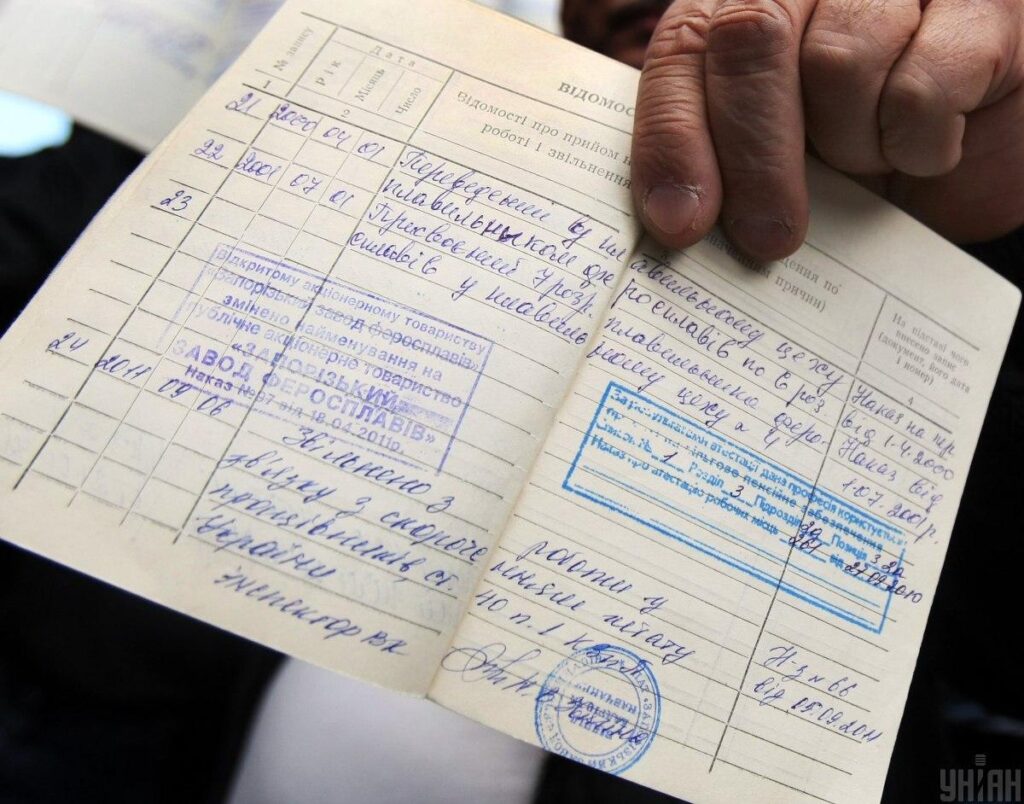 № запису
Дата
Рік
Місяць
Число
ВІДОМОСТІ
Відомості про прийом на
роботі і звільнення
причин)
На підставі чого
внесено запис
(документ, його дата
і номер)
1
2
4
21 2000 04 01 Переведений в плавильному цеху Наказ на пер
плавильником феросплавів по 6 роз від 1.4.2000
22 2001 07 01 Присвоєний 7 розр. плавильника феро- Наказ від
сплавів у плавильному цеху № 4 1.07.2001р.
23
Відкритому акціонерному товариству
«Запорізький завод феросплавів»
змінено найменування на
публічне акціонерне товариство
«ЗАПОРІЗЬКИЙ
ЗАВОД ФЕРОСПЛАВІВ»
Наказ №97 від 18.04.2011р.
За результатами атестації дана професія користується
правом на пільгове пенсійне забезпечення
Список № 1 Розділ 3 Підрозділ Позиція
Наказ про атестацію робочих місць від 27.09.2010
24 2011 09 06 Звільнено з роботи у Н-з № 66
звязку з скороченням штату від 05.09.2011
працівників, ст. 40 п. 1 КЗпП
України
Інспектор ВК
УНІАН